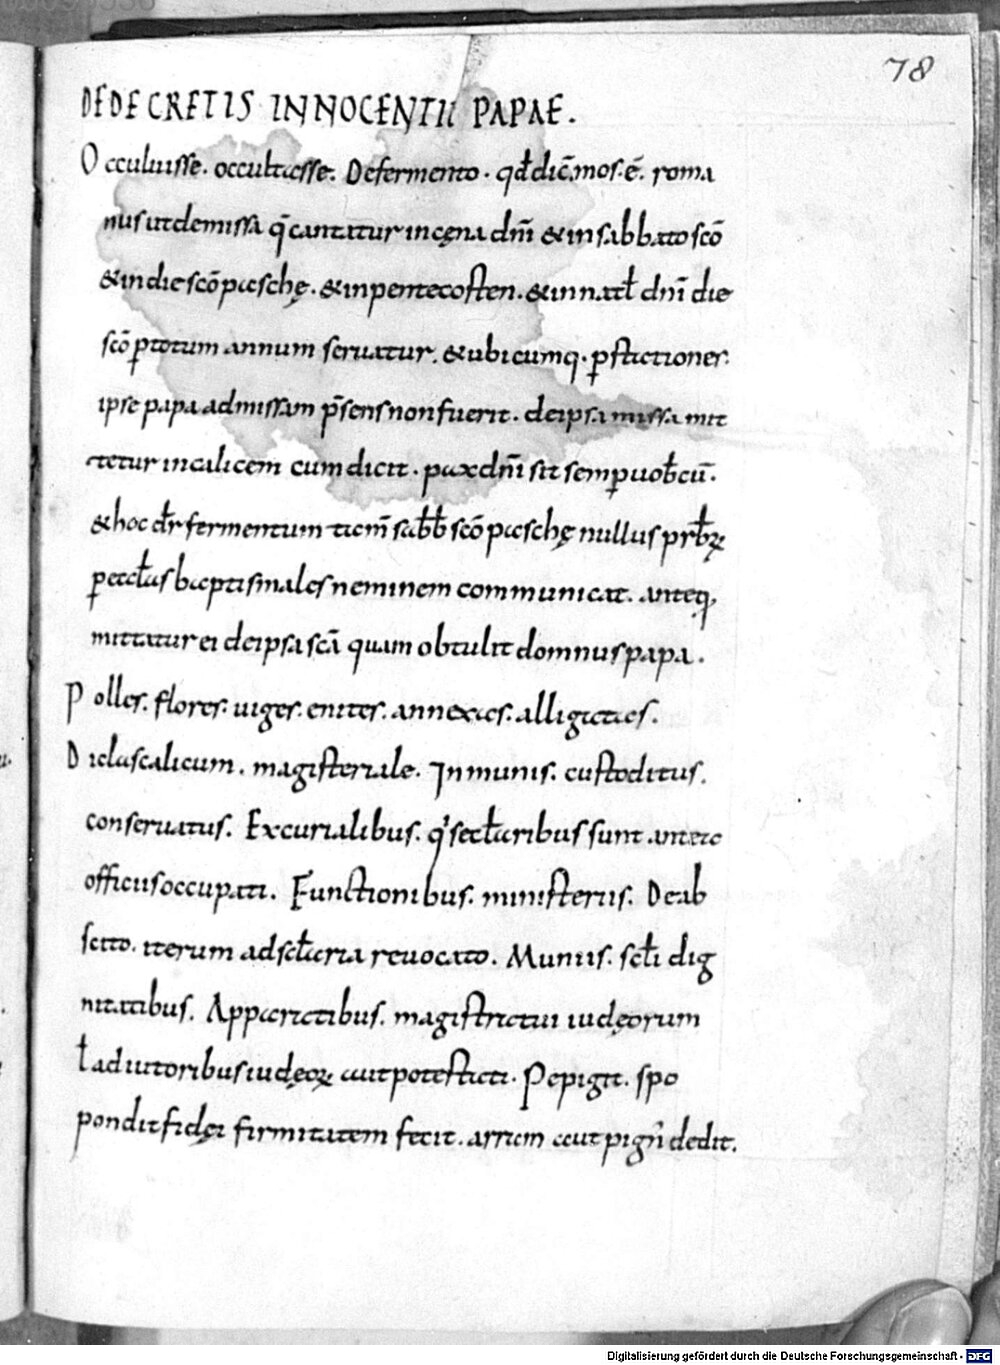 78
DE DECRETIS INNOCENTII PAPAE.
Occuluisse. occultasse. De fermento. qđ dic̄. mos. ē. roma
nus ut de missa q̄ cantatur in cęna dn̄i & in sabbato scō
& in die scō paschę. & in pentecosten. & in natł dn̄i die
scō ꝑ totum annum seruatur. & ubi cumq. ꝑ stationes.
ipse papa ad missam p̄sens non fuerit. de ipsa missa mit
tetur in calicem cum dicit. pax dn̄i sit semꝑ uob̄cū.
& hoc dr̄ fermentum tam̄ sab̄b̄ scō paschę nullus prb̄ꝝ
ꝑ eccłas baptismales neminem communicat. anteq̄
mittatur ei de ipsa scā quam obtulit domnus papa.
Polles. flores. uiges. enites. annexas. alligatas.
Didascalicum. magisteriale. Inmunis. custoditus.
conseruatus. Ex curialibus. q' secłaribus sunt antea
officiis occupati. Functionibus. ministeriis. De ab
scito. iterum ad scłaria reuocato. Muniis. scłi dig
nitatibus. Apparatibus. magistratui iudęorum
ł adiutoribus iudęoꝝ aut potestati. Pepigit. spo
pondit fidęi firmitatem fecit. arram aut pign̄ dedit.
Digitalisierung gefördert durch die Deutsche Forschungsgemeinschaft - DFG